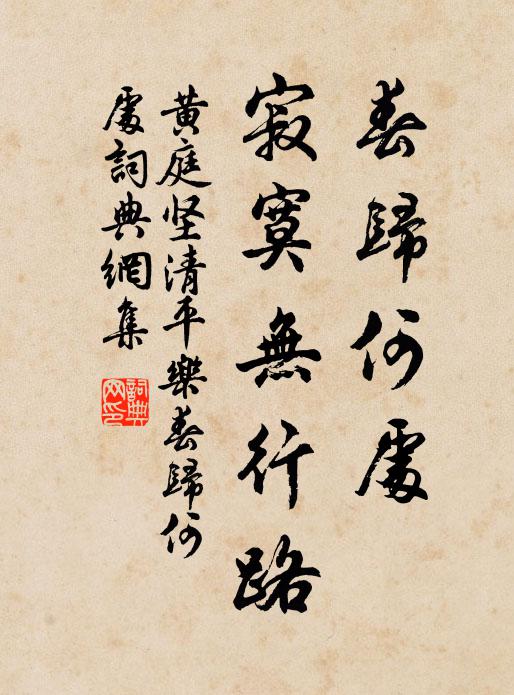 春歸何處
寂寞無行路
黄庭坚清平樂春歸何
處詞典網集
詞典
网印